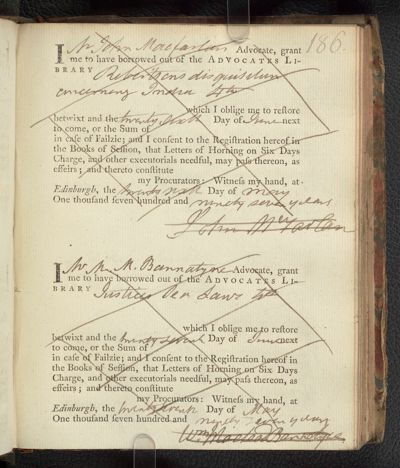 186.
I Mr John Macfarlan Advocate, grant
me to have borrowed out of the ADVOCATES LI-
BRARY Robertsons disquisition
concerning India 4to
which I oblige me to restore
betwixt and the twenty sixth Day of June next
to come, or the Sum of
in case of Failzie; and I consent to the Registration hereof in
the Books of Session, that Letters of Horning on Six Days
Charge, and other executorials needful, may pass thereon, as
effeirs; and thereto constitute
my Procurators: Witness my hand, at
Edinburgh, the twenty sixth Day of May
One thousand seven hundred and ninety seven years
John McFarlan
I Mr M. Bannatyne Advocate, grant
me to have borrowed out of the ADVOCATES LI-
BRARY Justices Laws 4to
which I oblige me to restore
betwixt and the twenty seventh Day of June next
to come, or the Sum of
in case of Failzie; and I consent to the Registration hereof in
the Books of Session, that Letters of Horning on Six Days
Charge, and other executorials needful, may pass thereon, as
effeirs; and thereto constitute
my Procurators: Witness my hand, at
Edinburgh, the Day of May
One thousand seven hundred and ninety seven years
Wm Bannatyne